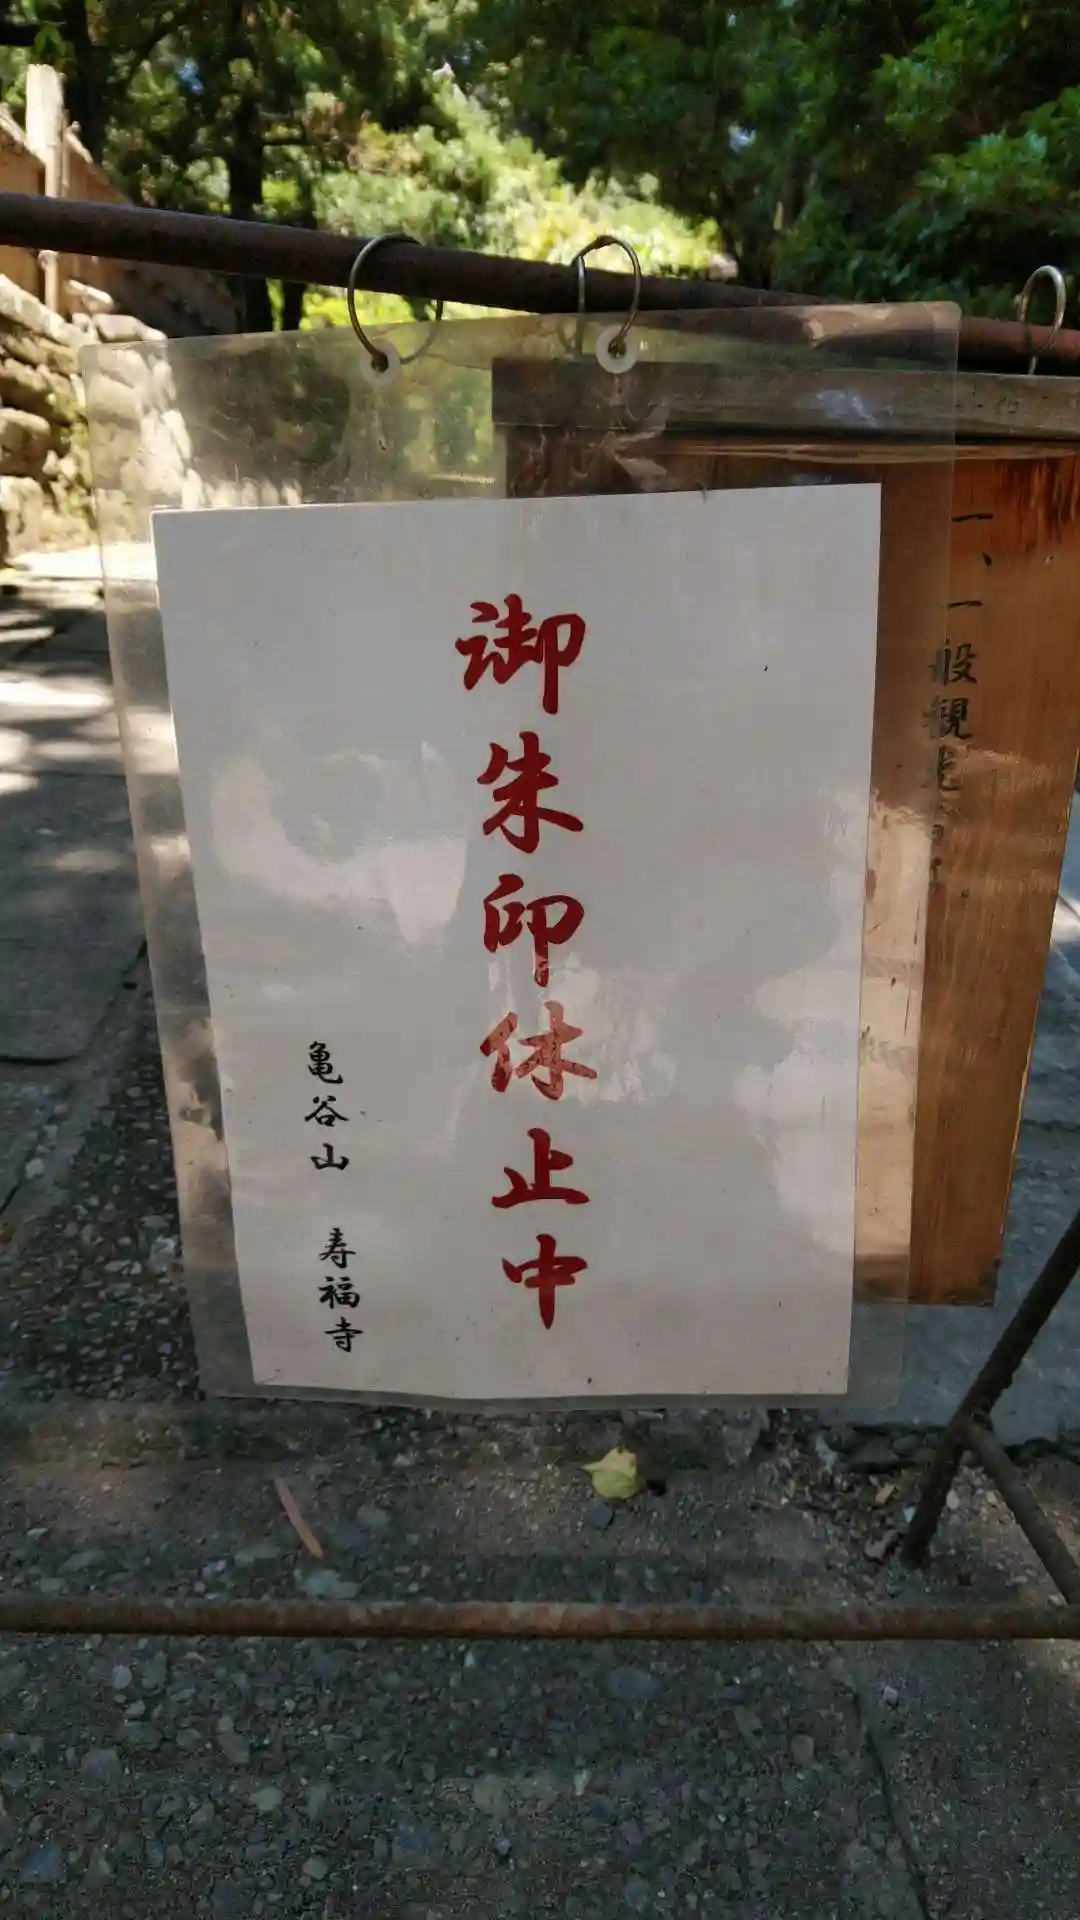 一、一般観光
御朱印休止中
亀谷山 寿福寺